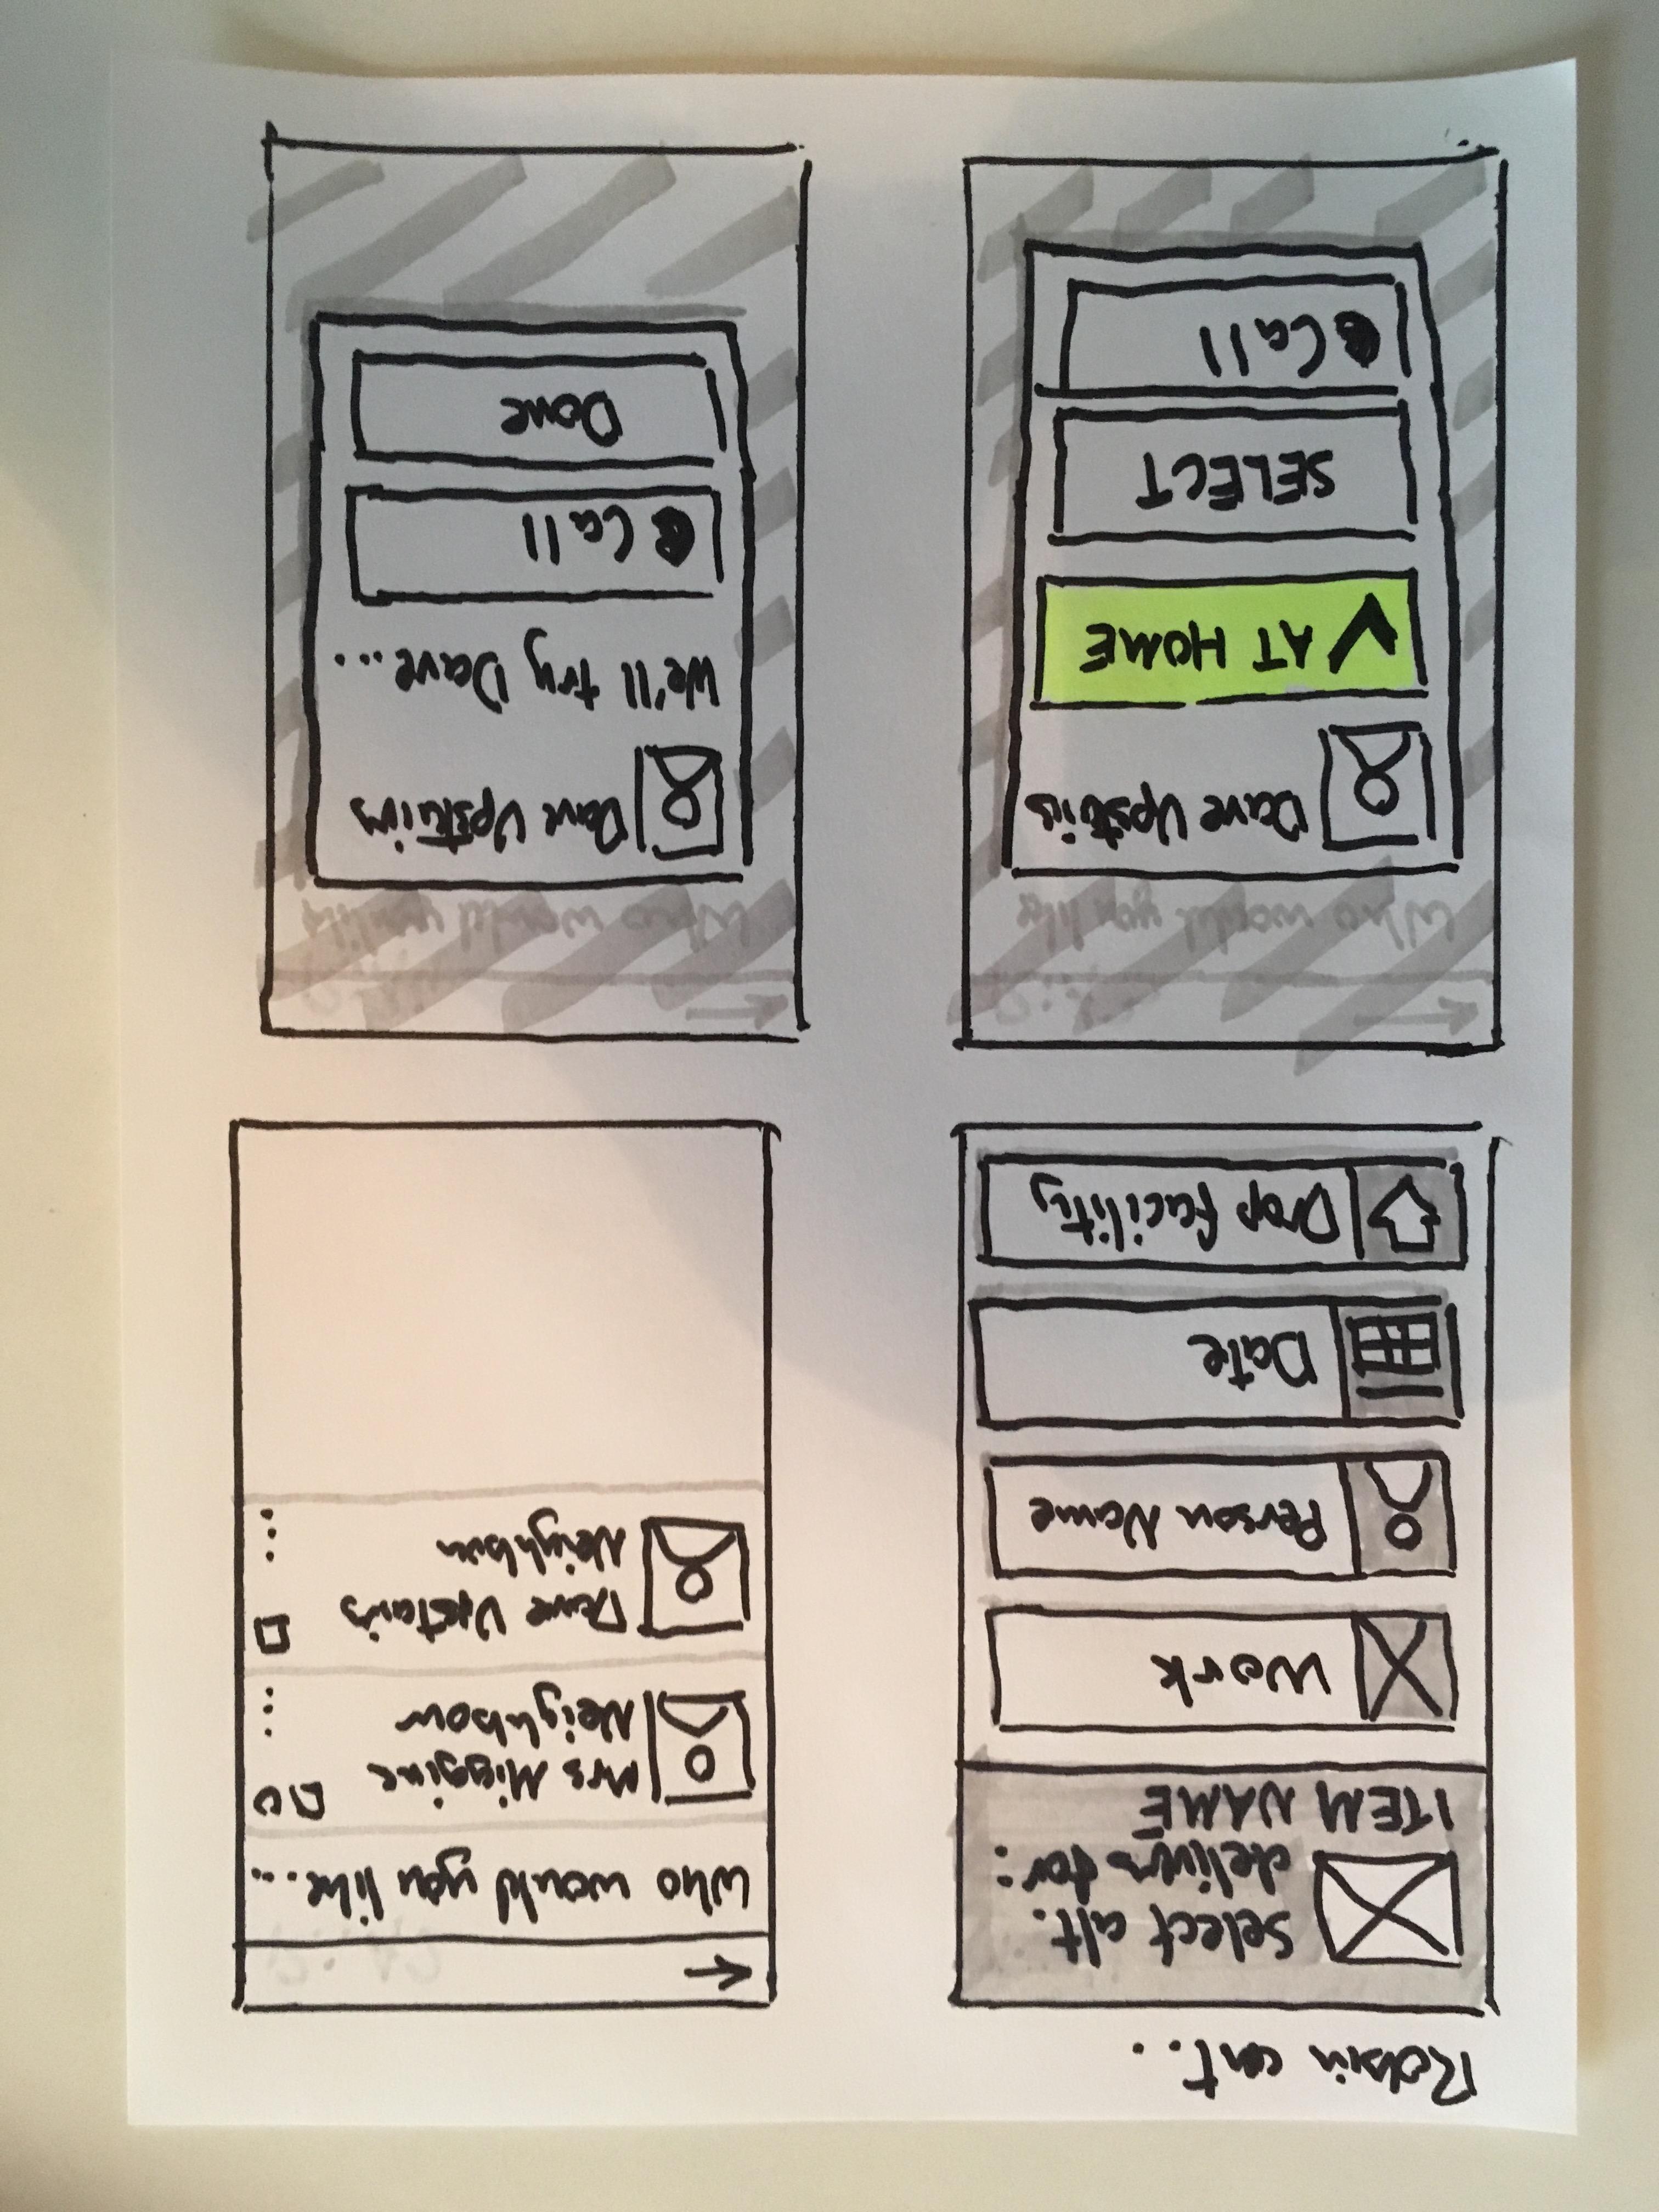 Robin cont..
Select alt.
deliver for:
ITEM NAME
Work
Person Name
Date
Drop facility
Who would you like...
Mrs Miggins
Neighbour
...
Dave Upstairs
Neighbour
...
Who would you like
Dave Upstairs
AT HOME
SELECT
Call
Who would you like
Dave Upstairs
We'll try Dave...
Call
Done